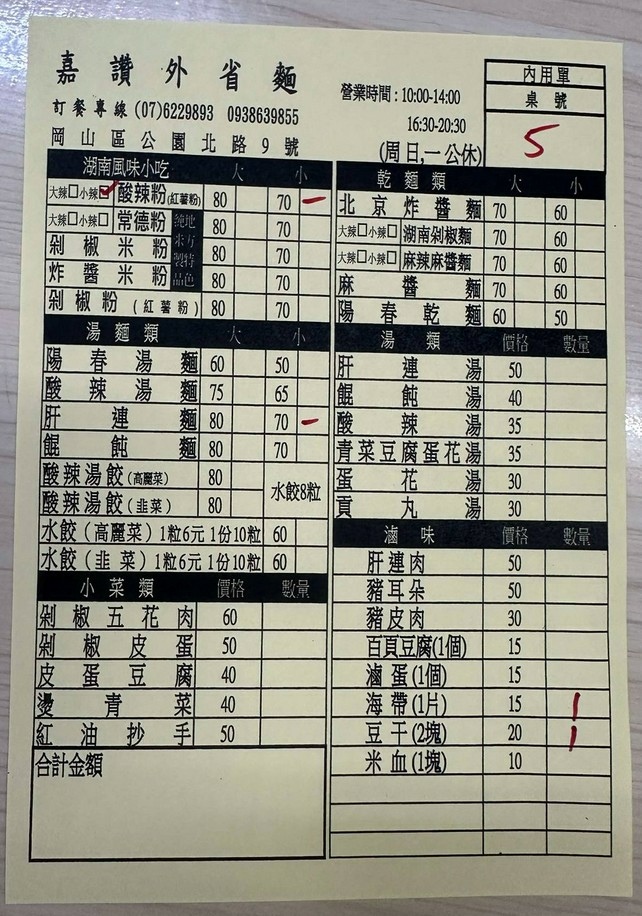 嘉讚外省麵
訂餐專線 (07)6229893 0938639855
岡山區公園北路9號
營業時間:10:00-14:00
16:30-20:30
(周日,一公休)
內用單
桌號
5
湖南風味小吃 大 小
大辣□小辣□ 酸辣粉(紅薯粉) 80 70 一
大辣□小辣□ 常德粉 80 70
剁椒米粉 80 70
炸醬米粉 80 70
純地
米方
製特
品色
剁椒粉(紅薯粉) 80 70
湯麵類 大 小
陽春湯麵 60 50
酸辣湯麵 75 65
肝連麵 80 70 一
餛飩麵 80 70
酸辣湯餃(高麗菜) 80
酸辣湯餃(韭菜) 80
水餃8粒
水餃(高麗菜)1粒6元 1份10粒 60
水餃(韭菜)1粒6元 1份10粒 60
小菜類 價格 數量
剁椒五花肉 60
剁椒皮蛋 50
皮蛋豆腐 40
燙青菜 40
紅油抄手 50
合計金額
乾麵類 大 小
北京炸醬麵 70 60
大辣□小辣□ 湖南剁椒麵 70 60
大辣□小辣□ 麻辣麻醬麵 70 60
麻醬麵 70 60
陽春乾麵 60 50
湯類 價格 數量
肝連湯 50
餛飩湯 40
酸辣湯 35
青菜豆腐蛋花湯 35
蛋花湯 30
貢丸湯 30
滷味 價格 數量
肝連肉 50
豬耳朵 50
豬皮肉 30
百頁豆腐(1個) 15
滷蛋(1個) 15
海帶(1片) 15 1
豆干(2塊) 20 1
米血(1塊) 10